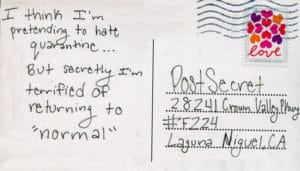 I think I'm
pretending to hate
quarantine...
But secretly I'm
terrified of
returning to
"normal"
love
FOREVER USA
PostSecret
28241 Crown Valley Pkwy
#F224
Laguna Niguel, CA